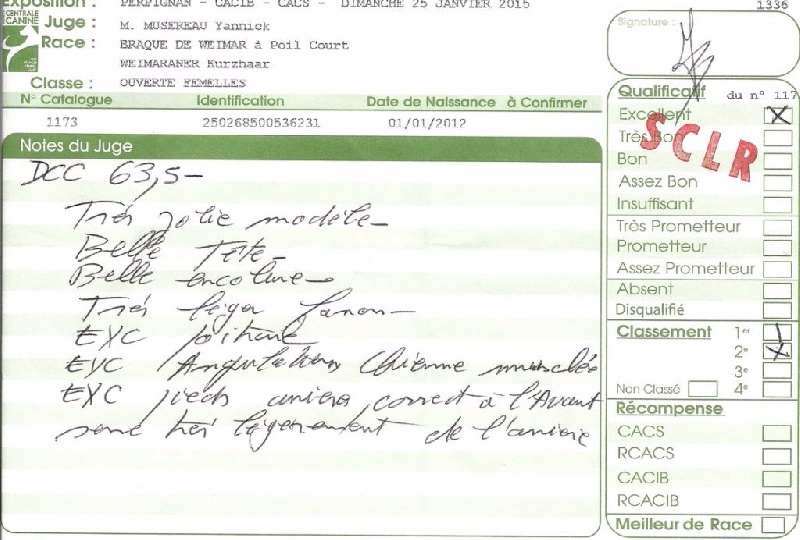 Exposition : PERPIGNAN - CACIB - CACS - DIMANCHE 25 JANVIER 2015
1336
CENTRALE CANINE
Juge : M. MUSEREAU Yannick
Race : BRAQUE DE WEIMAR à Poil Court
WEIMARANER Kurzhaar
Classe : OUVERTE FEMELLES
Signature :
N° Catalogue Identification Date de Naissance à Confirmer
1173 250268500536231 01/01/2012
Notes du Juge
DCC 63,5-
Très jolie modèle-
Belle Tête-
Belle encolure-
Très léger fanon-
EXC poitrine
EXC Angulation Chienne musclée
EXC pieds correct à l'Avant
très légèrement de l'
Qualificatif du n° 117
Excellent X
Très Bon
SCLR
Bon
Assez Bon
Insuffisant
Très Prometteur
Prometteur
Assez Prometteur
Absent
Disqualifié
Classement 1er
2e X
3e
Non Classé 4e
Récompense
CACS
RCACS
CACIB
RCACIB
Meilleur de Race